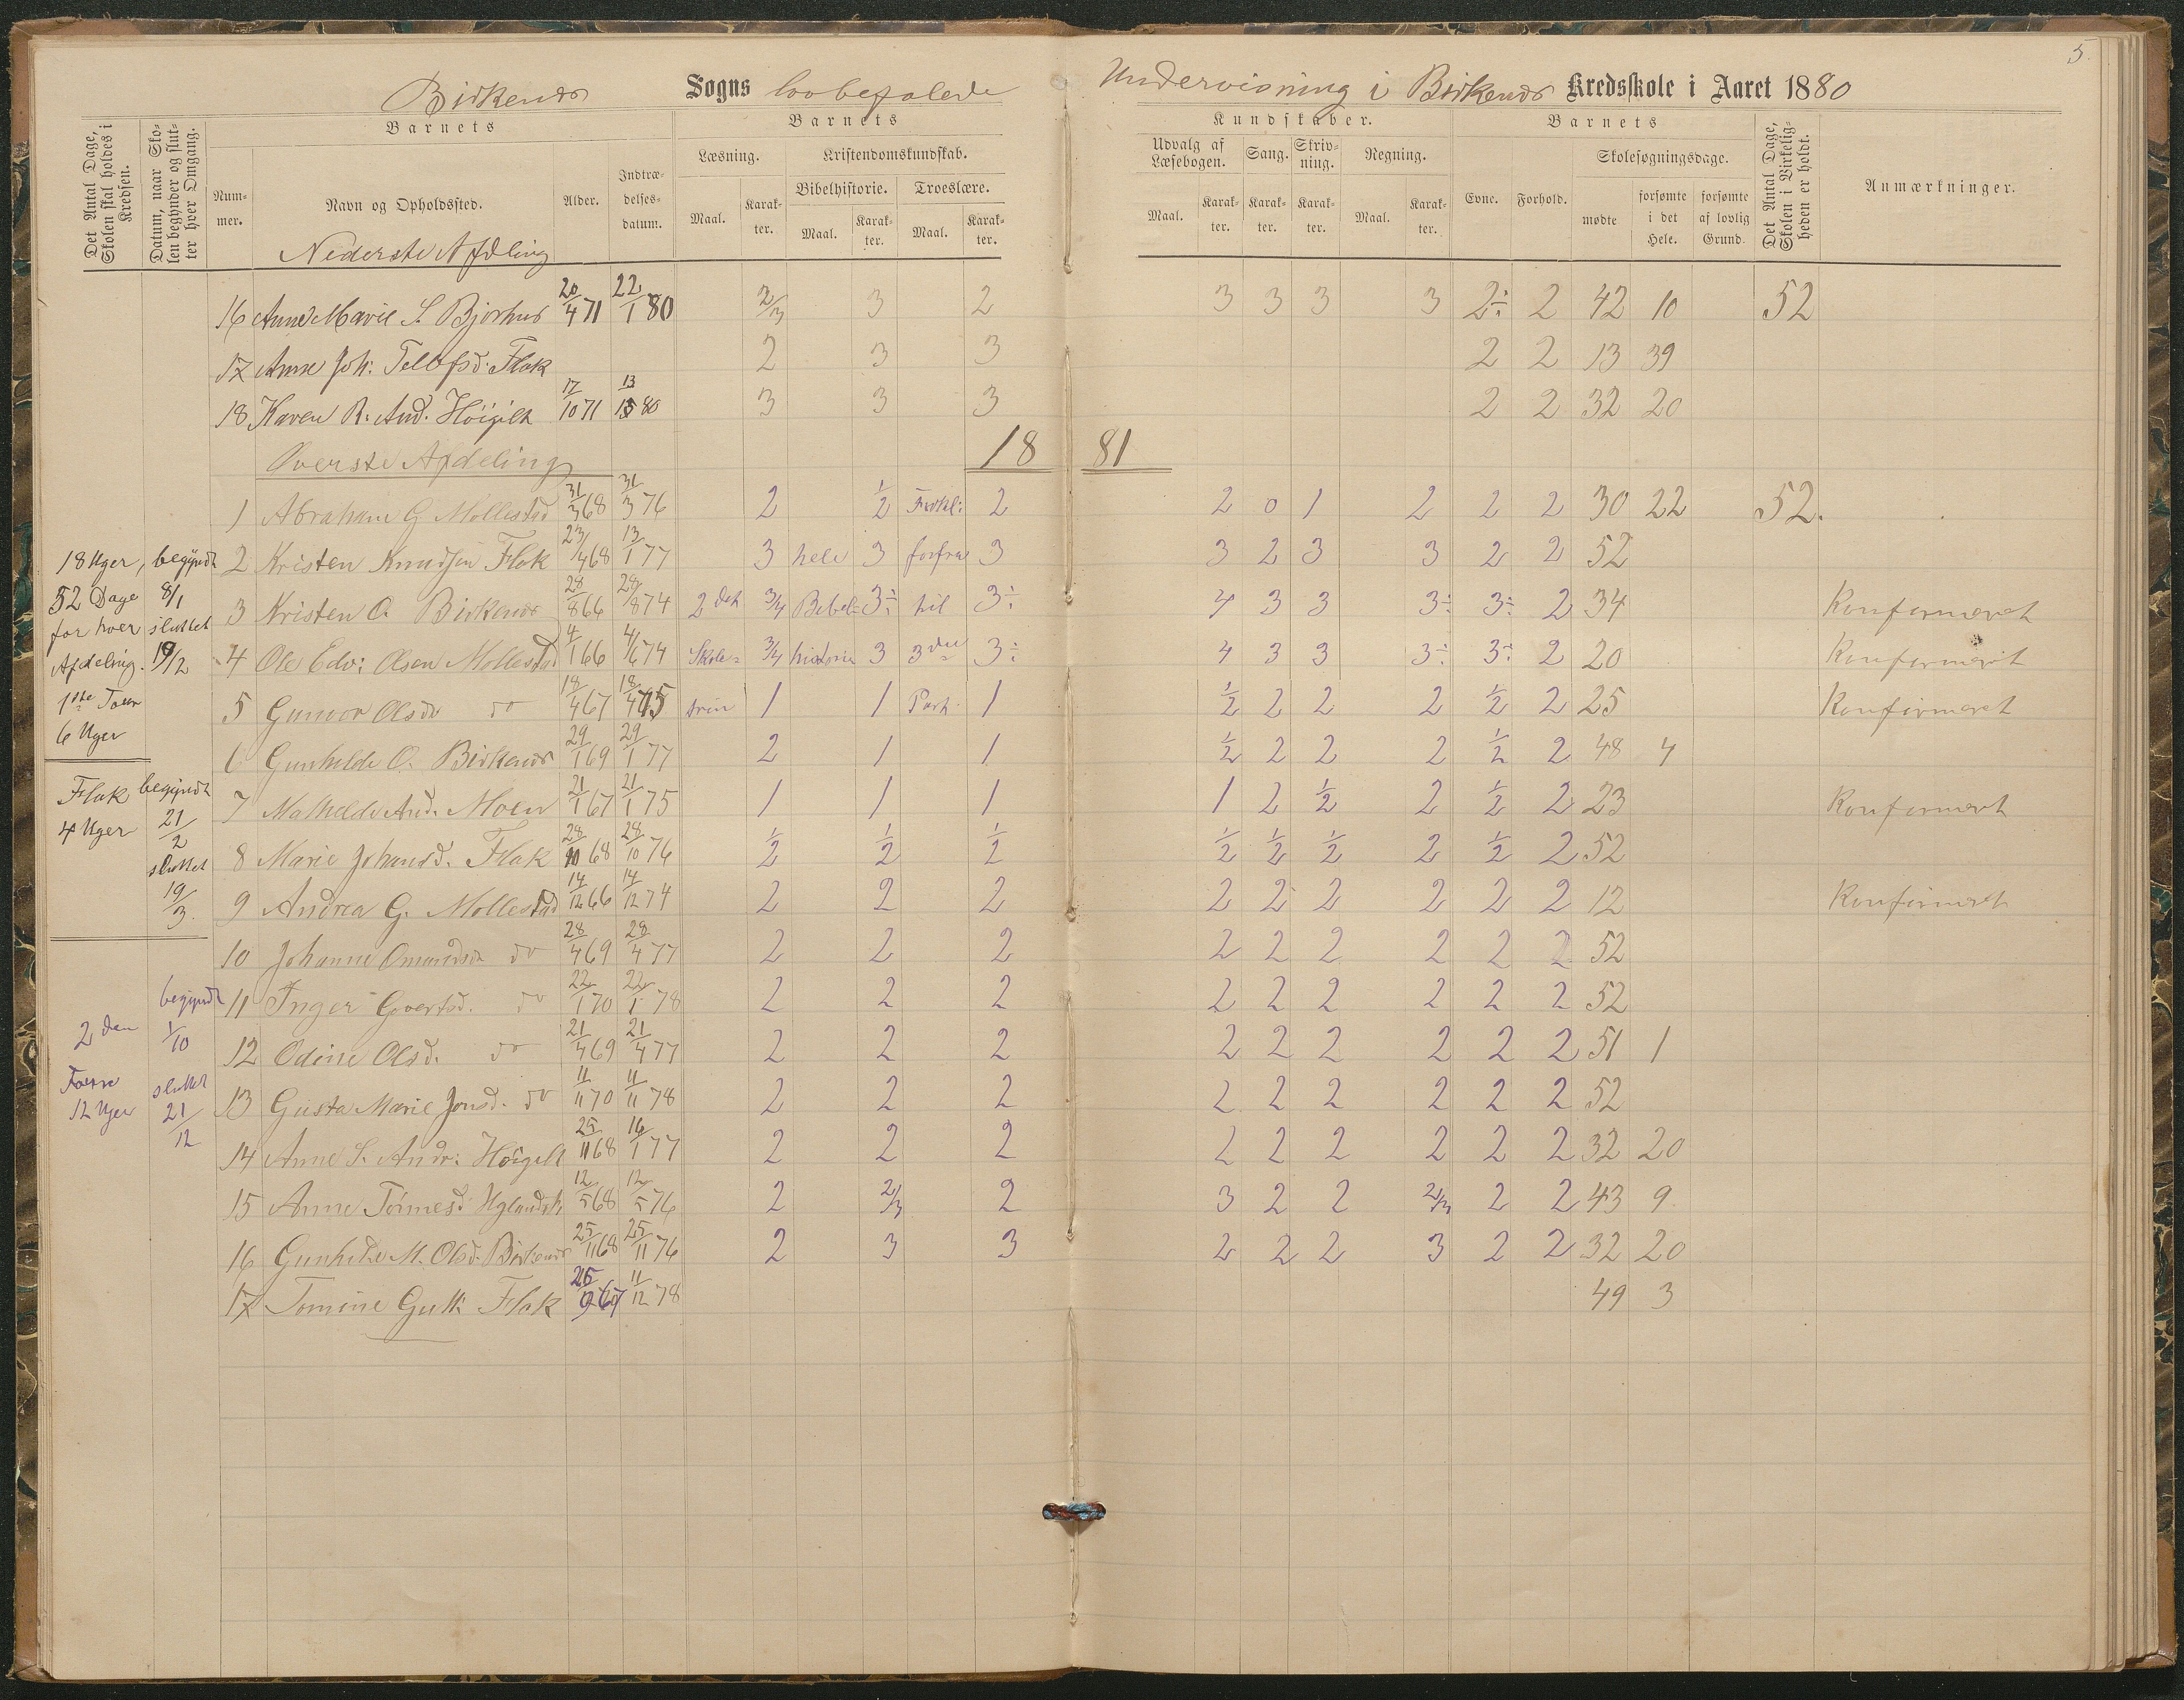 5.
Birkenes Sogns lovbefalede Undervisning i Birkenes Kredsskole i Aaret 1880
Det Antal Dage, Skolen skal holdes i Kredsen.
Datum, naar Skolen begynder og slutter hver Omgang.
Barnets
Nummer.
Navn og Opholdssted.
Alder.
Indtrædelsesdatum.
Barnets
Læsning.
Maal.
Karakter.
Kristendomskundskab.
Bibelhistorie.
Maal.
Karakter.
Troeslære.
Maal.
Karakter.
Kundskaber.
Udvalg af Læsebogen.
Maal.
Karakter.
Sang.
Karakter.
Skrivning.
Karakter.
Regning.
Maal.
Karakter.
Barnets
Evne.
Forhold.
Skolesøgningsdage.
mødte
forsømte i det Hele.
forsømte af lovlig Grund.
Det Antal Dage, Skolen i Virkeligheden er holdt.
Anmærkninger.
Nederste Afdling
16 Anne Marie S. Bjorhus 20/4 71 22/1 80 2/3 3 2 3 3 3 3 2÷ 2 42 10 52
17 Anne Joh: Tellefsd. Flak 2 3 3 2 2 13 39
18 Karen R. And. Höigilt 17/10 71 13/ 80 3 3 3 2 2 32 20
Överste Afdeling 18 81
1 Abraham G Mollestad 31/3 68 31/3 76 2 1/2 Forkl: 2 2 0 1 2 2 2 30 22 52.
2 Kristen Knudsen Flak 23/4 68 13/1 77 3 hele 3 forfra 3 3 2 3 3 2 2 52
3 Kristen O. Birkenes 28/8 66 28/8 74 2det 3/4 Bibel= 3÷ til 3÷ 4 3 3 3÷ 3÷ 2 34 Konfirmeret
4 Ole Edv: Olsen Mollestad 4/1 66 4/6 74 Skole= 3/4 historie 3 3die 3÷ 4 3 3 3÷ 3÷ 2 20 Konfirmeret
5 Gunvor Olsdr do 18/4 67 18/4 75 trin 1 1 Part. 1 1/2 2 2 2 1/2 2 25 Konfirmeret
6 Gunhilde O. Birkenes 29/1 69 29/1 77 2 1 1 1/2 2 2 2 1/2 2 48 4
7 Mathilde And. Moen 21/1 67 21/1 75 1 1 1 1 2 1/2 2 1/2 2 23 Konfirmert
8 Marie Johansd. Flak 28/10 68 28/10 76 1/2 1/2 1/2 1/2 1/2 1/2 2 1/2 2 52
9 Andrea G. Mollestad 14/12 66 14/12 74 2 2 2 2 2 2 2 2 2 12 Konfirmeret
10 Johanne Omundsd do 28/4 69 28/4 77 2 2 2 2 2 2 2 2 2 52
11 Inger Govertsd. do 22/1 70 22/1 78 2 2 2 2 2 2 2 2 2 52
12 Odine Olsd. do 21/4 69 21/4 77 2 2 2 2 2 2 2 2 2 51 1
13 Gusta Marie Jensd. do 11/11 70 11/11 78 2 2 2 2 2 2 2 2 2 52
14 Anne S. Andr: Höigilt 25/11 68 16/1 77 2 2 2 2 2 2 2 2 2 32 20
15 Anne Tönnesd 12/5 68 12/5 76 2 2/3 2 3 2 2 2/3 2 2 43 9
16 Gunhilde M. Olsd. Birkenes 25/11 68 25/11 76 2 3 3 2 2 2 3 2 2 32 20
17 Tomine Gutt: Flak 67 11/12 78 49 3
18 Uger, begyndt
52 Dage 8/1
for hver sluttet
Afdeling. 19/2
1ste Tour
6 Uger
Flak begyndt
4 Uger 21/2
sluttet
19/3.
begyndt
2den 1/10
Tourn sluttet
12 Uger 21/12